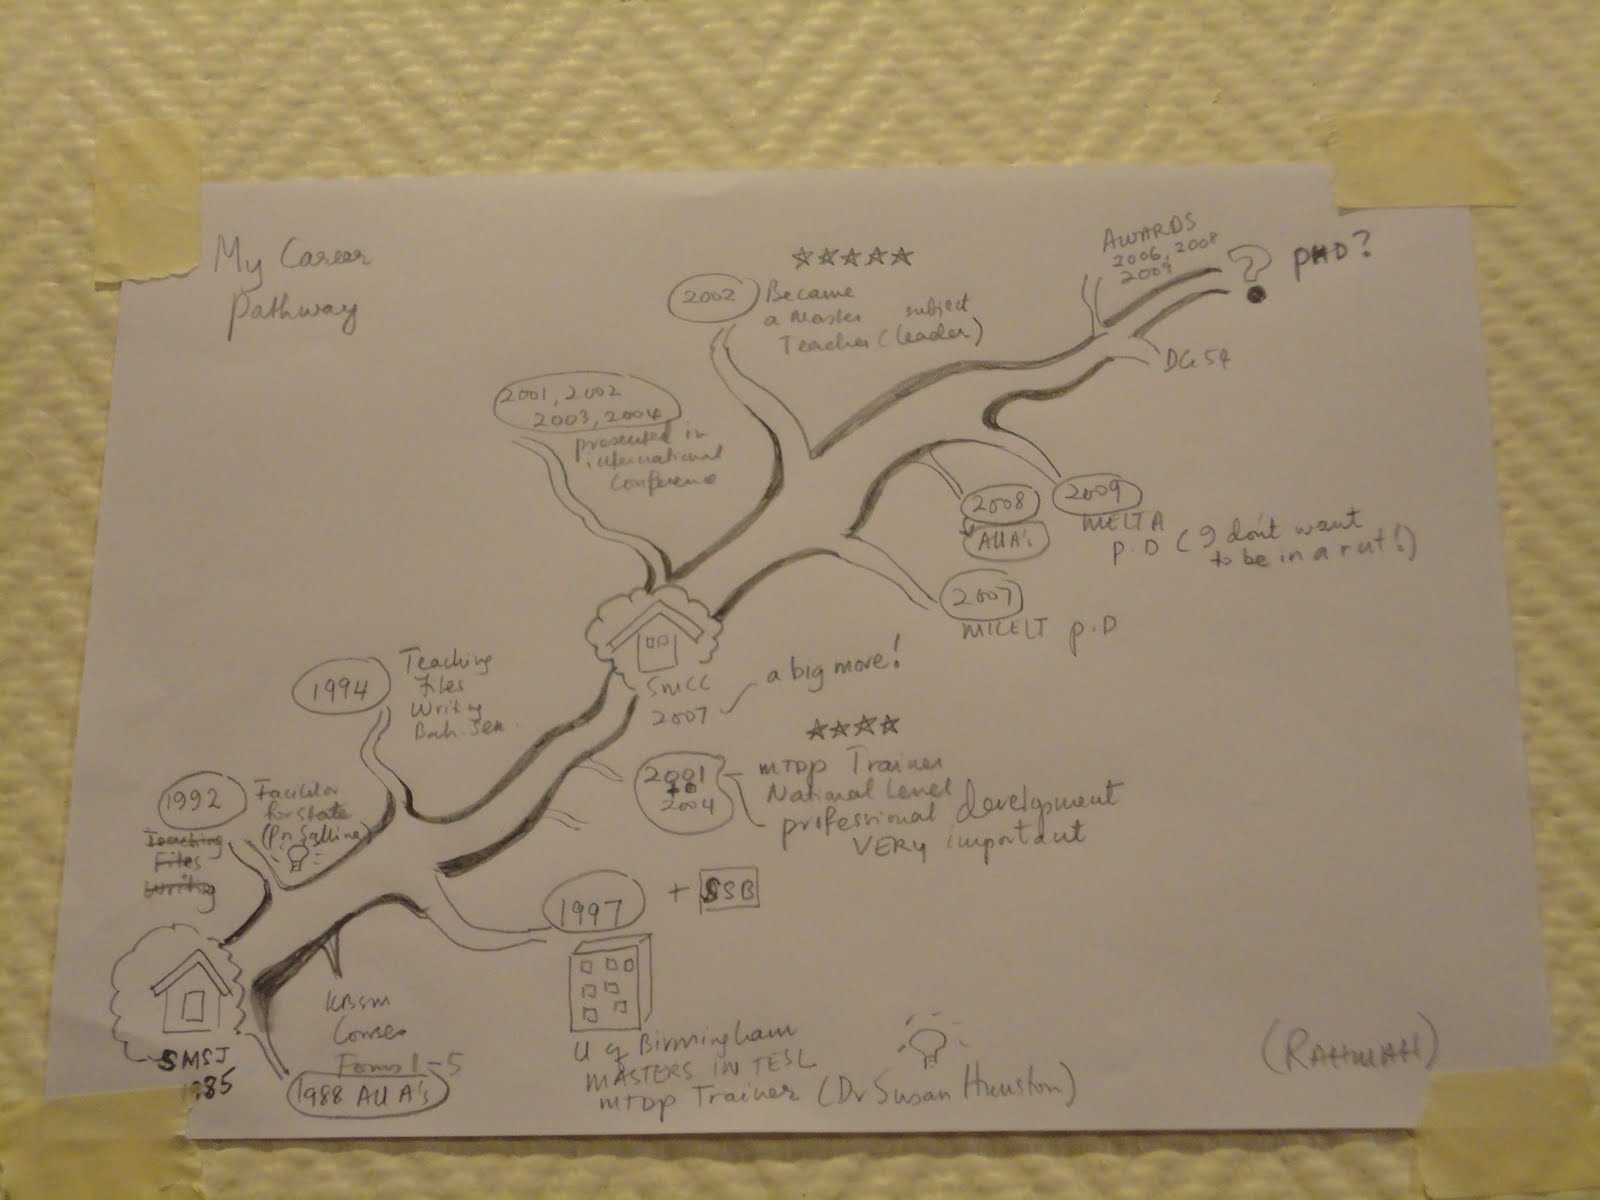 My Career
Pathway
AWARDS
2006, 2008
2009
? PHD?
DG 54
2002
Became
a Master subject
Teacher (leader)
2001, 2002
2003, 2004
presented in
international
Conference
2008
All A's
2009
MELTA
P.D (I don't want
to be in a rut!)
2007
MICELT P.D
SMCC
2007
a big more!
1994
Teaching
Files
Writing
Bah.
2001
to
2004
MTDP Trainer
National Level
professional development
VERY important
1992
Teaching
Files
Writing
Facilitator
for State
1997
+ SSB
U of Birmingham
MASTERS IN TESL
MTDP Trainer (Dr Susan
SMSJ
1985
KBSM
Courses
Forms 1-5
1988 All A's
(RAHMAH)